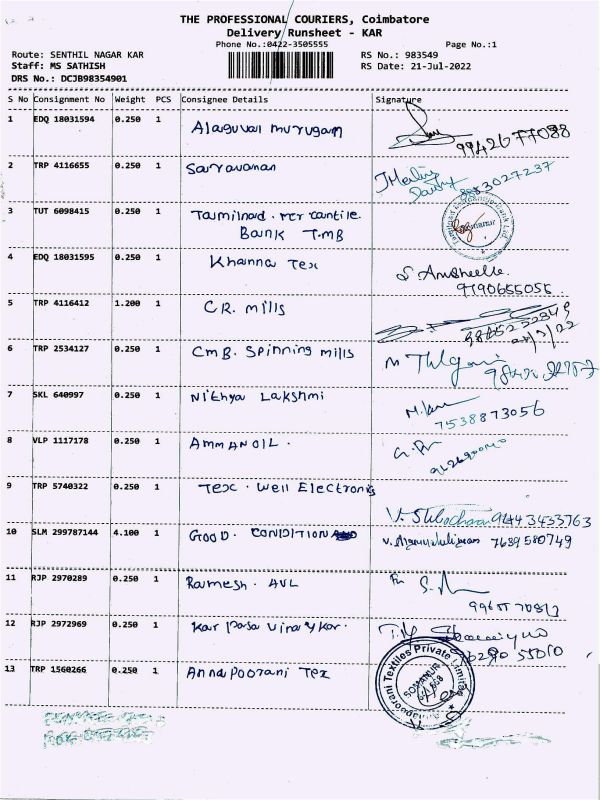 THE PROFESSIONAL COURIERS, Coimbatore
Delivery Runsheet - KAR
Phone No.:0422-3505555
Page No.:1
Route: SENTHIL NAGAR KAR
RS No.: 983549
Staff: MS SATHISH
RS Date: 21-Jul-2022
DRS No.: DCJB98354901
S No Consignment No Weight PCS Consignee Details Signature
1 EDQ 18031594 0.250 1 Alaguvai murugam
9942677088
2 TRP 4116655 0.250 1 Saravanan
3027237
3 TUT 6098415 0.250 1 Tamilnad . mercantile.
Bank T.M.B
4 EDQ 18031595 0.250 1 Khanna Tex
9790655055
5 TRP 4116412 1.200 1 C.R. mills
6 TRP 2534127 0.250 1 CMB. Spinning mills
7 SKL 640997 0.250 1 Nithya Lakshmi
7538873056
8 VLP 1117178 0.250 1 AMMAN OIL .
9 TRP 5740322 0.250 1 Tex . well Electronis
9443433763
10 SLM 299787144 4.100 1 GOOD . CONDITION
7639580749
11 RJP 2970289 0.250 1 Ramesh . AVL
12 RJP 2972969 0.250 1 Kar pasa vinaykar.
55010
13 TRP 1560266 0.250 1 Annapoorani Tex
Annapoorani Textiles Private Limited
SOMANUR